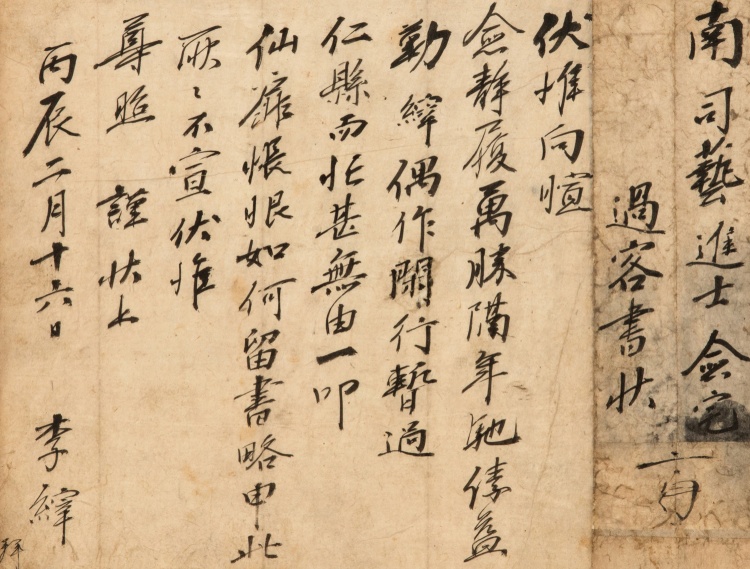 南司藝進士僉宅
過客書狀
伏惟向暄
僉靜履萬勝隔年馳傃益
勤縡偶作關行暫過
仁縣而忙甚無由一叩
仙扉悵恨如何留書略申此
耿〻不宣伏惟
尊照 謹狀上
丙辰二月十六日
李縡
拜